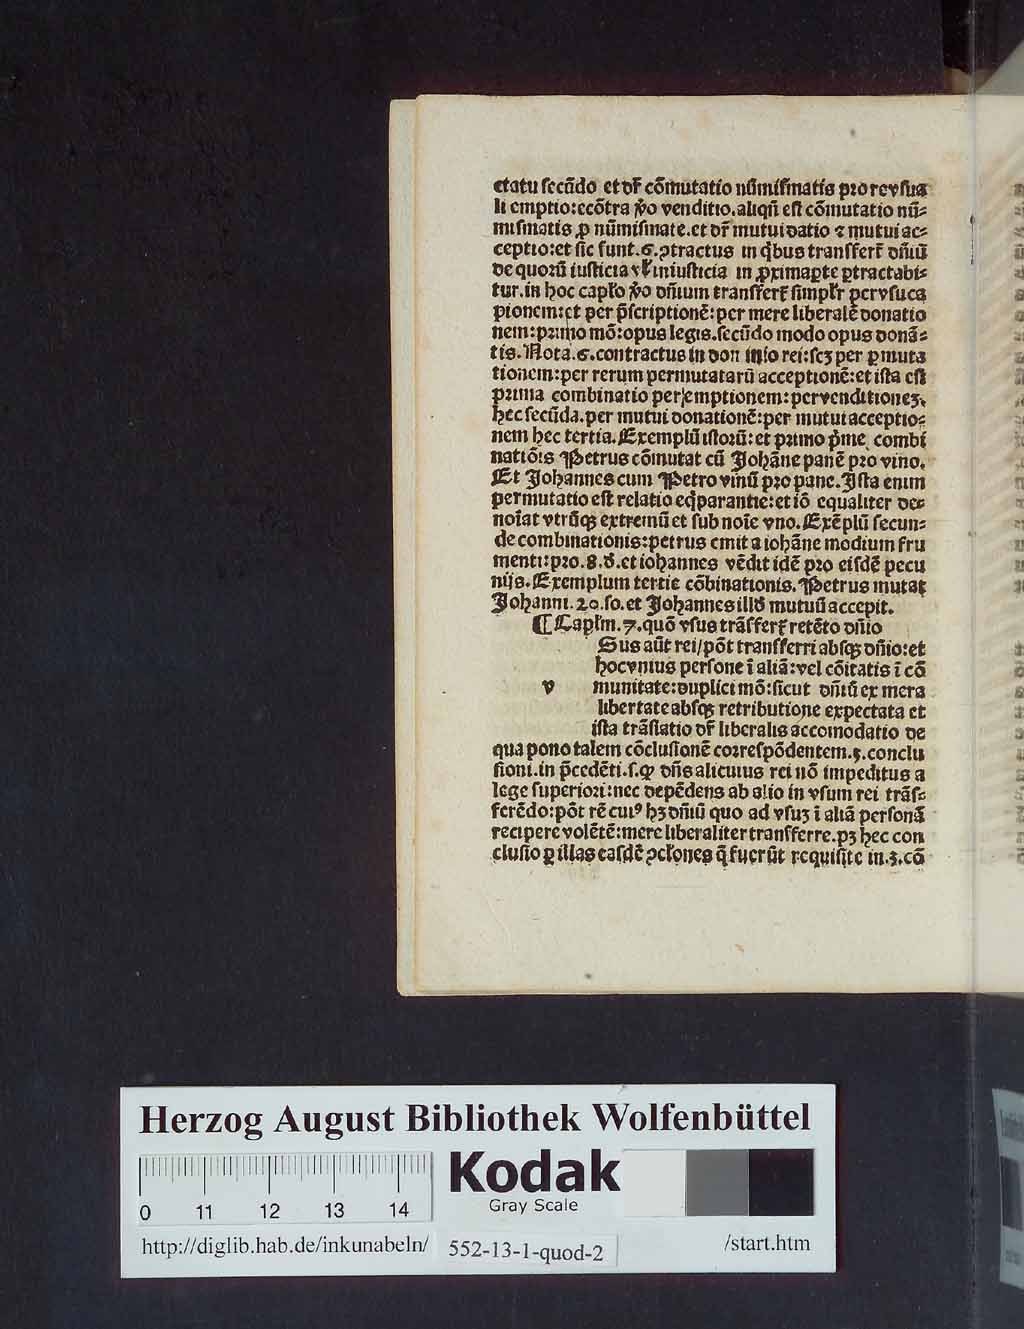 ctatu secūdo et dr̄ cōmutatio nūmismatis pro re vsua
li emptio:ecōtra ꝟo venditio.aliqn̄ est cōmutatio nū-
mismatis ꝓ nūmismate.et dr̄ mutui datio ⁊ mutui ac-
ceptio:et sic sunt.6.ꝯtractus in q̄bus transfert̄ dn̄iū
de quorū iusticia vl̓ iniusticia in ꝓxima ꝑte ꝑtractabi-
tur.in hoc capl̓o ꝟo dn̄ium transfert̄ simpl̓r per vsuca
pionem:et per p̄scriptionē:per mere liberalē donatio
nem:primo mō:opus legis.secūdo modo opus donā-
tis.Nota.6.contractus in don inio rei:scꝫ per ꝑmuta
tionem:per rerum permutatarū acceptionē:et ista est
prima combinatio per emptionem:per venditionez.
hec secūda.per mutui donationē:per mutui acceptio-
nem hec tertia.Exemplū istorū:et primo p̄me combi
natiōis Petrus cōmutat cū Johāne panē pro vino.
Et Johannes cum Petro vinū pro pane.Ista enim
permutatio est relatio eq̄parantie:et iō equaliter de-
noīat vtrūqꝫ extremū et sub noīe vno.Exēplū secun-
de combinationis:petrus emit a iohāne modium fru
menti:pro.8.d̄.et iohannes vēdit idē pro eisdē pecu
niis.Exemplum tertie cōbinationis.Petrus mutat
Johanni.20.so.et Johannes illd̄ mutuū accepit.
¶ Capl̓m.7.quō vsus trāsfert̄ retēto dn̄io
Sus aūt rei/pōt transferri absqꝫ dn̄io:et
hoc vnius persone ī aliā:vel cōitatis ī cō
v munitate:duplici mō:sicut dn̄iū ex mera
libertate absqꝫ retributione expectata et
ista trāslatio dr̄ liberalis accomodatio de
qua pono talem cōclusionē correspōdentem.3.conclu
sioni.in p̄cedēti.s.ꝙ dn̄s alicuius rei nō impeditus a
lege superiori:nec depēdens ab alio in vsum rei trās-
ferēdo:pōt rē cuiꝰ hꝫ dn̄iū quo ad vsuꝫ ī aliā personā
recipere volētē:mere liberaliter transferre.pꝫ hec con
clusio ꝑ illas easdē ꝯcl̓ones q̄ fuerūt requisite in.3.cō
Herzog August Bibliothek Wolfenbüttel
Kodak
Gray Scale
0 11 12 13 14
http://diglib.hab.de/inkunabeln/ 552-13-1-quod-2 /start.htm